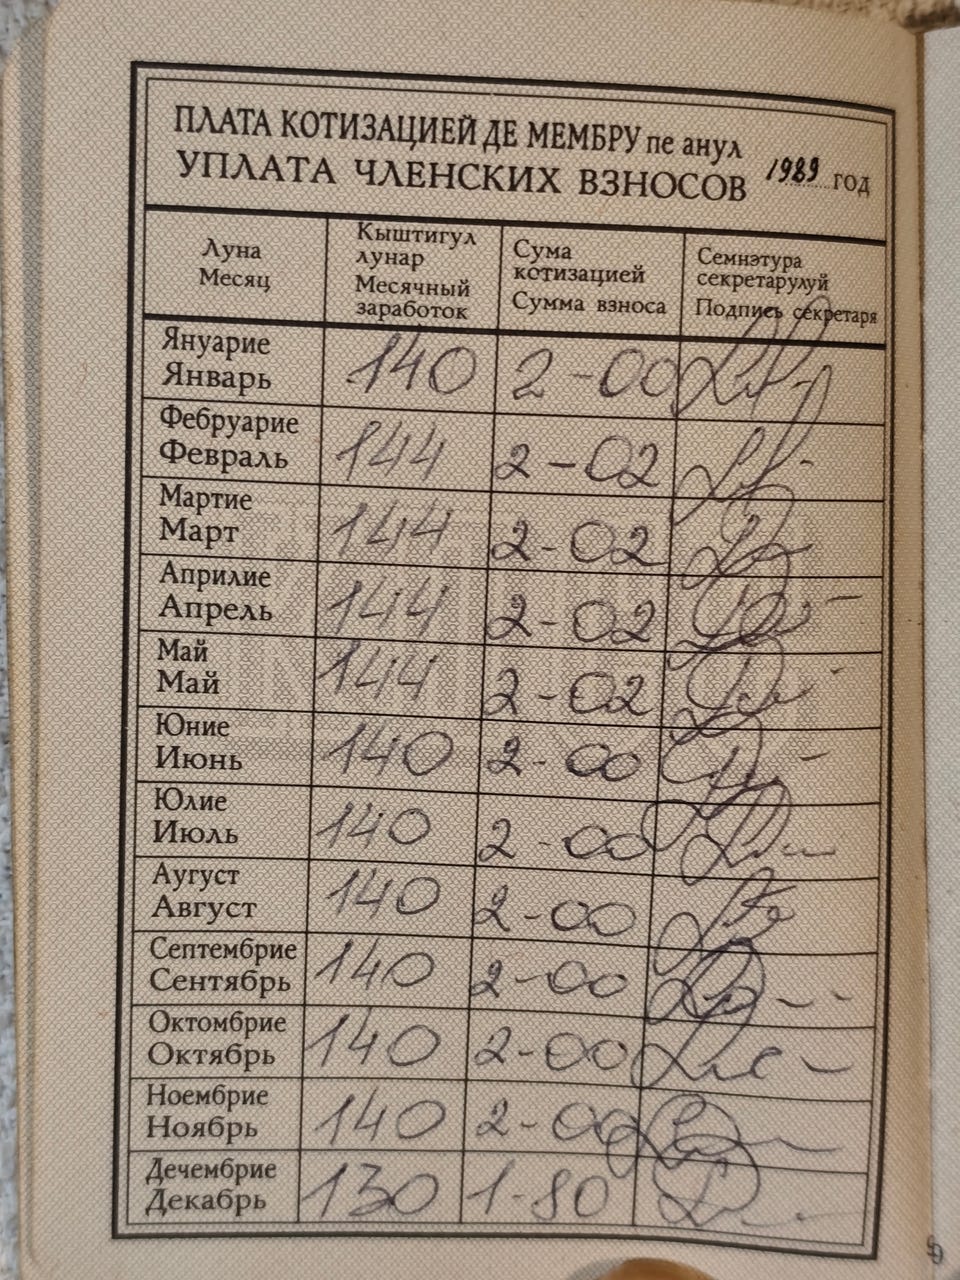 ПЛАТА КОТИЗАЦИЕЙ ДЕ МЕМБРУ пе анул
УПЛАТА ЧЛЕНСКИХ ВЗНОСОВ 1989 год
Луна
Месяц
Кыштигул
лунар
Месячный
заработок
Сума
котизацией
Сумма взноса
Семнэтура
секретарулуй
Подпись секретаря
Януарие
Январь 140 2-00
Фебруарие
Февраль 144 2-02
Мартие
Март 144 2-02
Априлие
Апрель 144 2-02
Май
Май 144 2-02
Юние
Июнь 140 2-00
Юлие
Июль 140 2-00
Аугуст
Август 140 2-00
Септембрие
Сентябрь 140 2-00
Октомбрие
Октябрь 140 2-00
Ноембрие
Ноябрь 140 2-00
Дечембрие
Декабрь 130 1-80